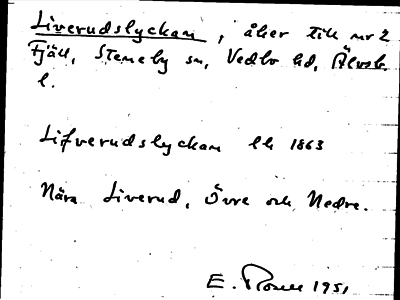 Liverudslyckan, åker till nr 2
Fjäll, Steneby sn, Vedbo hd, Älvsb.
l.
Lifverudslyckan lh 1863
Nära Liverud, Övre och Nedre.
E. Rosen 1951